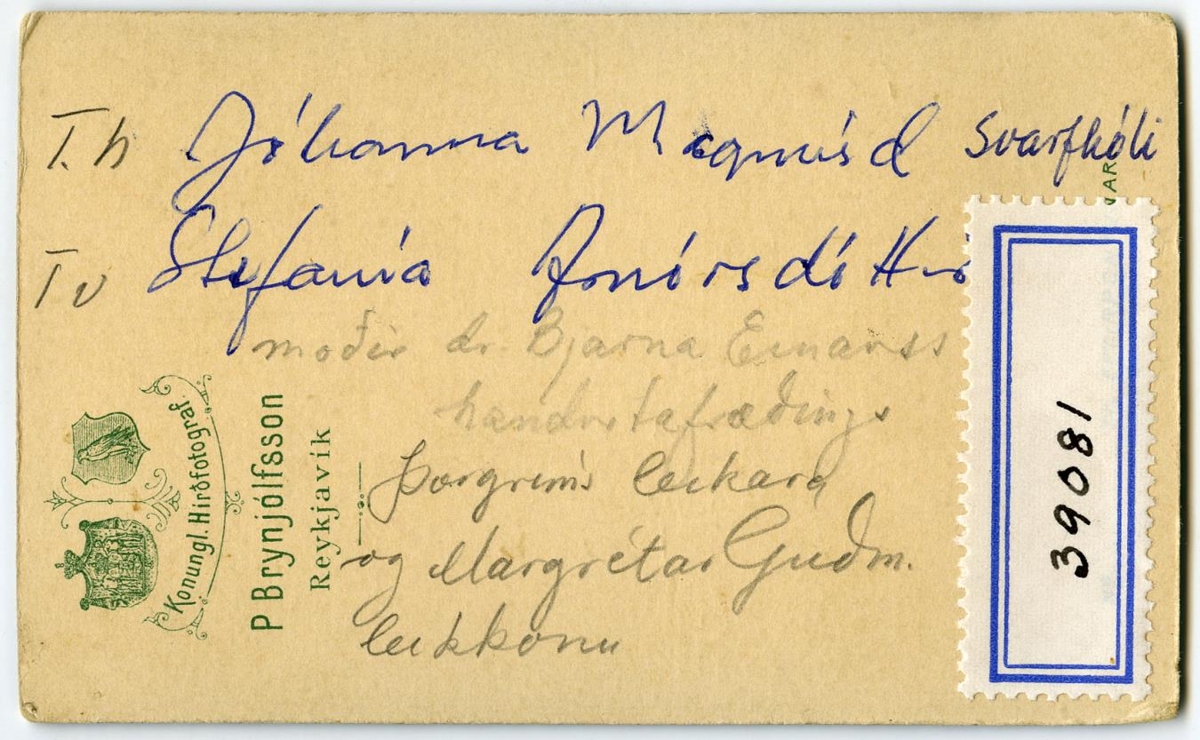 T.h Jóhanna Magnúsd Svarfhóli
Tv Stefanía Arnórsdóttir
móðir dr. Bjarna Einarss
handritafræðings
Þorgríms leikara
og Margrétar Guðm.
leikkonu
Konungl. Hirðfotograf.
P Brynjólfsson
Reykjavík
39081